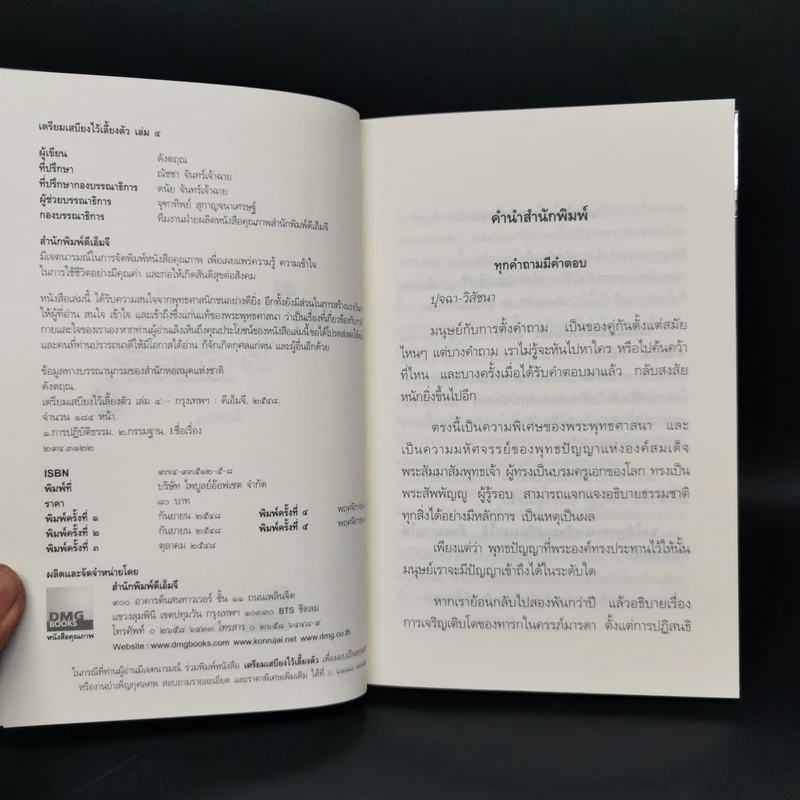 เตรียมเสบียงไว้เลี้ยงตัว เล่ม ๔
ผู้เขียน ดังตฤณ
ที่ปรึกษา ณัชชา จันทร์เจ้าฉาย
ที่ปรึกษากองบรรณาธิการ ดนัย จันทร์เจ้าฉาย
ผู้ช่วยบรรณาธิการ จุฑาทิพย์ สุกาญจนาเศรษฐ์
กองบรรณาธิการ ทีมงานฝ่ายผลิตหนังสือคุณภาพสำนักพิมพ์ดีเอ็มจี
สำนักพิมพ์ดีเอ็มจี
มีเจตนารมณ์ในการจัดพิมพ์หนังสือคุณภาพ เพื่อเผยแพร่ความรู้ ความเข้าใจ
ในการใช้ชีวิตอย่างมีคุณค่า และก่อให้เกิดสันติสุขต่อสังคม
หนังสือเล่มนี้ ได้รับความสนใจจากพุทธศาสนิกชนอย่างดียิ่ง อีกทั้งยังมีส่วนในการสร้างแรง
ให้ผู้ที่อ่าน สนใจ เข้าใจ และเข้าถึงซึ่งแก่นแท้ของพระพุทธศาสนา ว่าเป็นเรื่องที่เกี่ยวข้องกับ
กายและใจของเราเอง หากท่านผู้อ่านเล็งเห็นถึงคุณประโยชน์ของหนังสือเล่มนี้ ขอได้โปรดส่งต่อให้
และคนที่ท่านปรารถนาดีให้มีโอกาสได้อ่าน ก็จักเกิดกุศลแก่ตน และผู้อื่นอีกด้วย
ข้อมูลทางบรรณานุกรมของสำนักหอสมุดแห่งชาติ
ดังตฤณ.
เตรียมเสบียงไว้เลี้ยงตัว เล่ม ๔.-- กรุงเทพฯ : ดีเอ็มจี, ๒๕๔๘.
จำนวน ๑๘๔ หน้า.
๑.การปฏิบัติธรรม. ๒.กรรมฐาน. I.ชื่อเรื่อง
๒๙๔.๓๑๒๒
ISBN ๙๗๔-๙๓๕๑๒-๕-๘
พิมพ์ที่ บริษัท ไพบูลย์อ๊อฟเซต จำกัด
ราคา ๘๐ บาท
พิมพ์ครั้งที่ ๑ กันยายน ๒๕๔๘ พิมพ์ครั้งที่ ๔
พิมพ์ครั้งที่ ๒ กันยายน ๒๕๔๘ พิมพ์ครั้งที่ ๕
พิมพ์ครั้งที่ ๓ ตุลาคม ๒๕๔๘
ผลิตและจัดจำหน่ายโดย
สำนักพิมพ์ดีเอ็มจี
๙๐๐ อาคารต้นสนทาวเวอร์ ชั้น ๑๑ ถนนเพลินจิต
แขวงลุมพินี เขตปทุมวัน กรุงเทพฯ ๑๐๓๓๐ BTS ชิดลม
โทรศัพท์ ๐ ๒๖๕๘ ๖๔๓๓ โทรสาร ๐ ๒๖๕๘ ๖๔๔๘-๙
Website : www.dmgbooks.com www.konrujai.net www.dmg.co.th
DMG
BOOKS
หนังสือคุณภาพ
ในกรณีที่ท่านผู้อ่านมีเจตนารมณ์ ร่วมพิมพ์หนังสือ เตรียมเสบียงไว้เลี้ยงตัว
หรืองานบำเพ็ญกุศลศพ สอบถามรายละเอียด และราคาพิเศษเพิ่มเติม ได้ที่
คำนำสำนักพิมพ์
ทุกคำถามมีคำตอบ
ปุจฉา-วิสัชนา
มนุษย์กับการตั้งคำถาม เป็นของคู่กันตั้งแต่สมัย
ไหนๆ แต่บางคำถาม เราไม่รู้จะหันไปหาใคร หรือไปค้นคว้า
ที่ไหน และบางครั้งเมื่อได้รับคำตอบมาแล้ว กลับสงสัย
หนักยิ่งขึ้นไปอีก
ตรงนี้เป็นความพิเศษของพระพุทธศาสนา และ
เป็นความมหัศจรรย์ของพุทธปัญญาแห่งองค์สมเด็จ
พระสัมมาสัมพุทธเจ้า ผู้ทรงเป็นบรมครูเอกของโลก ทรงเป็น
พระสัพพัญญู ผู้รู้รอบ สามารถแจกแจงอธิบายธรรมชาติ
ทุกสิ่งได้อย่างมีหลักการ เป็นเหตุเป็นผล
เพียงแต่ว่า พุทธปัญญาที่พระองค์ทรงประทานไว้ให้นั้น
มนุษย์เราจะมีปัญญาเข้าถึงได้ในระดับใด
หากเราย้อนกลับไปสองพันกว่าปี แล้วอธิบายเรื่อง
การเจริญเติบโตของทารกในครรภ์มารดา ตั้งแต่การปฏิสนธิ